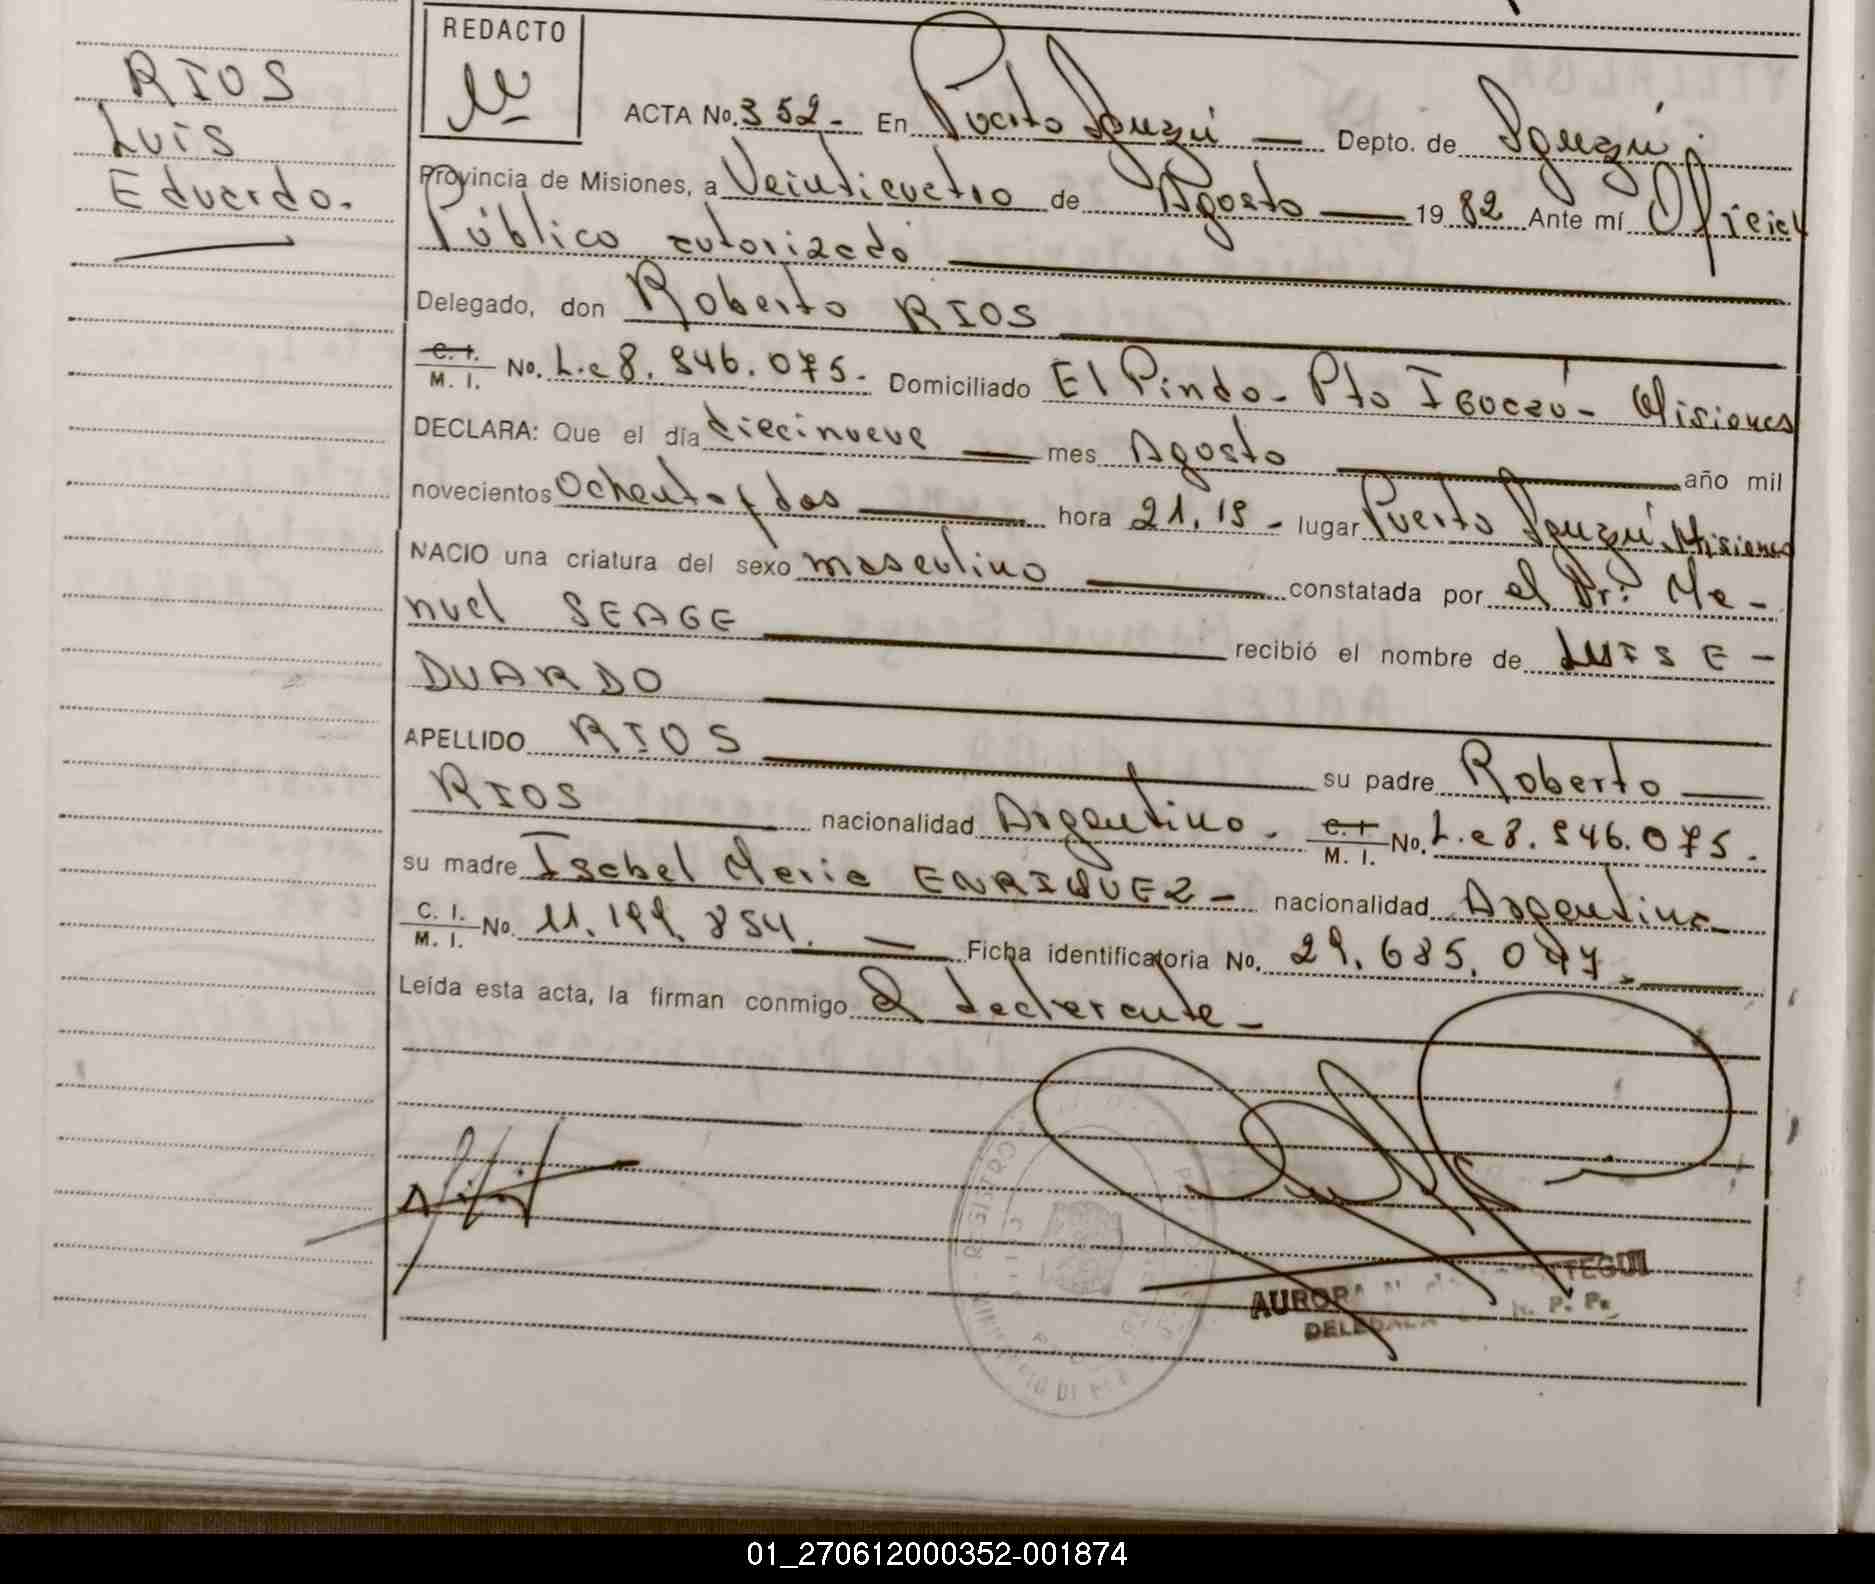 RIOS
Luis
Eduardo.
REDACTO
ACTA No. 352- En Puerto Iguazú — Depto. de Iguazú.
Provincia de Misiones, a Veinticuatro de Agosto — 19 82 Ante mí Oficial
Público autorizado
Delegado, don Roberto RIOS
C. I. M. I. No. L.e 8.546.075. Domiciliado El Pindo - Pto Iguazú - Misiones
DECLARA: Que el día diecinueve — mes Agosto — año mil
novecientos Ochenta y dos — hora 21,15 - lugar Puerto Iguazú Misiones
NACIO una criatura del sexo masculino — constatada por el Dr: Ma-
nuel SEAGE — recibió el nombre de LUIS E-
DUARDO
APELLIDO RIOS — su padre Roberto —
RIOS — nacionalidad Argentino. C. I. M. I. No. L.e 8.546.075.
su madre Isabel Maria ENRIQUEZ - nacionalidad Argentina
C. I. M. I. No. 11.199.854. — Ficha identificatoria No. 29.685.047. —
Leída esta acta, la firman conmigo el declarante -
REGISTRO
AURORA TEGUI
DELEGADA
01_270612000352-001874